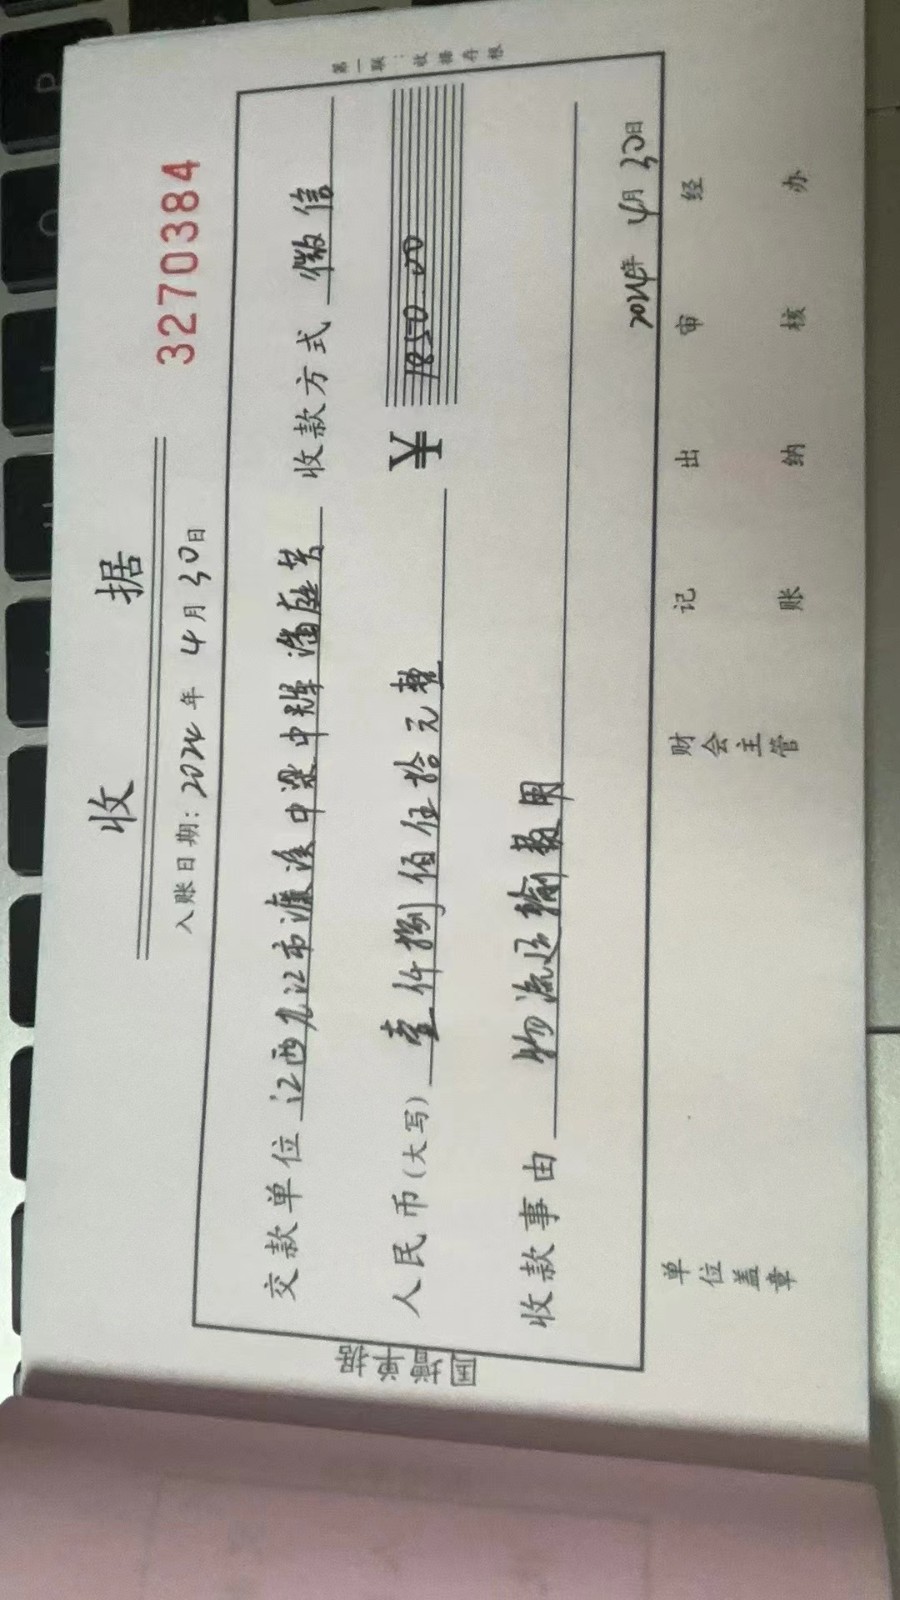 收 据
3270384
入账日期：2024年 4月 30日
第一联：收据存根
交款单位 江西九江市濂溪中梁中辉潘庭芳 收款方式 微信
人民币（大写） 壹仟捌佰伍拾元整 ¥ 1850.00
收款事由 物流运输费用
2024年 4月 30日
单位盖章 财会主管 记账 出纳 审核 经办